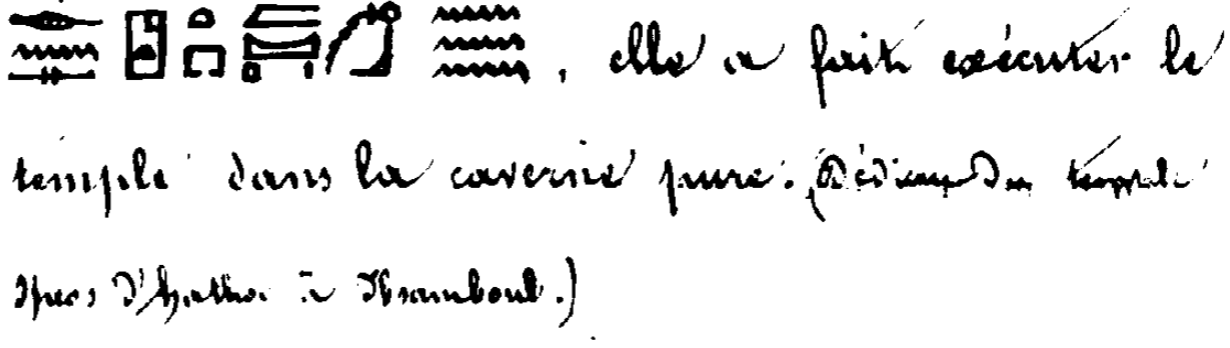 , elle a fait exécuter le
temple dans la caverne pure. (Dédicace du temple
d'Hathor à Ibsamboul.)